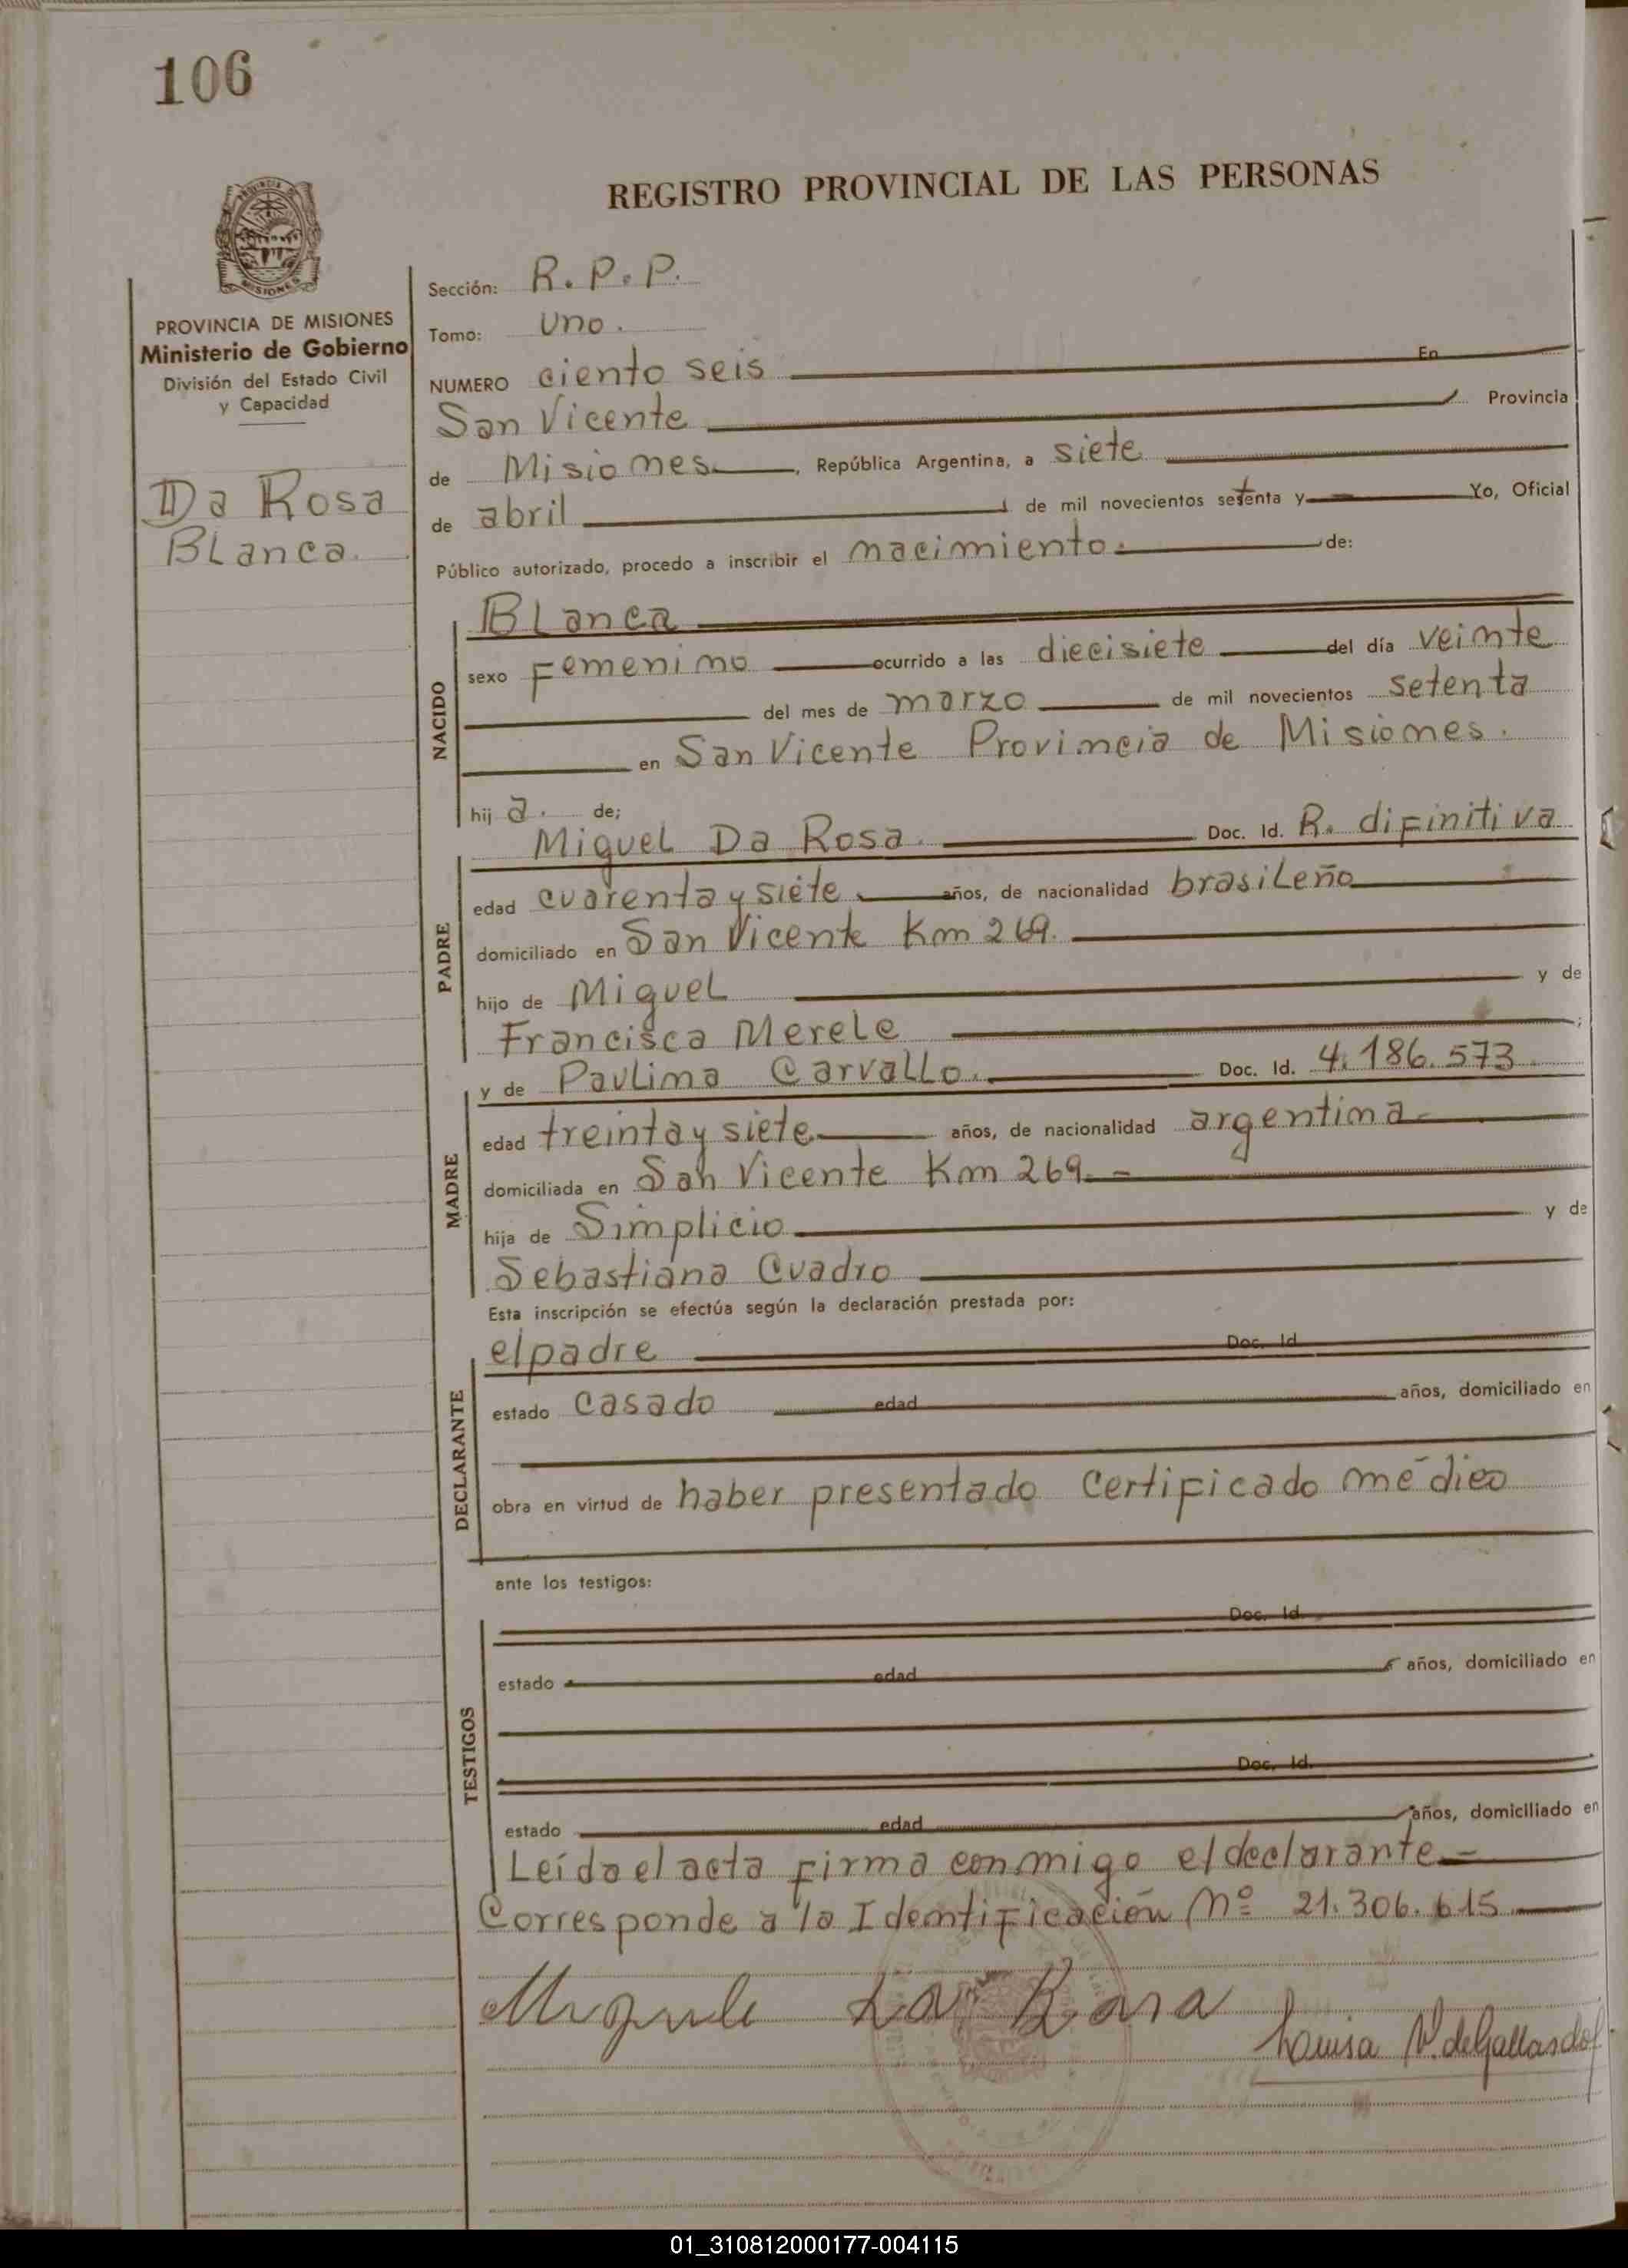 106
REGISTRO PROVINCIAL DE LAS PERSONAS
PROVINCIA DE MISIONES
Ministerio de Gobierno
División del Estado Civil
y Capacidad
Da Rosa
Blanca.
Sección: R.P.P.
Tomo: Uno.
NUMERO ciento seis En
San Vicente Provincia
de Misiones, República Argentina, a siete
de abril de mil novecientos setenta y Yo, Oficial
Público autorizado, procedo a inscribir el nacimiento. de:
NACIDO
Blanca
sexo Femenino ocurrido a las diecisiete del día veinte
del mes de marzo de mil novecientos setenta
en San Vicente Provincia de Misiones.
hij a. de;
PADRE
Miguel Da Rosa. Doc. Id. R. difinitiva
edad cuarenta y siete años, de nacionalidad brasileño
domiciliado en San Vicente Km 269.
hijo de Miguel y de
Francisca Merele ;
MADRE
y de Paulina Carvallo. Doc. Id. 4.186.573
edad treinta y siete años, de nacionalidad argentina
domiciliada en San Vicente Km 269.-
hija de Simplicio y de
Sebastiana Cuadro
Esta inscripción se efectúa según la declaración prestada por:
DECLARANTE
el padre Doc. Id.
estado casado edad años, domiciliado en
obra en virtud de haber presentado certificado médico
ante los testigos:
TESTIGOS
Doc. Id.
estado edad años, domiciliado en
Doc. Id.
estado edad años, domiciliado en
Leída el acta firma conmigo el declarante.-
Corresponde a la Identificación Nº 21.306.615
Miguele Da Rosa
Louisa N. de Gallardo
01_310812000177-004115